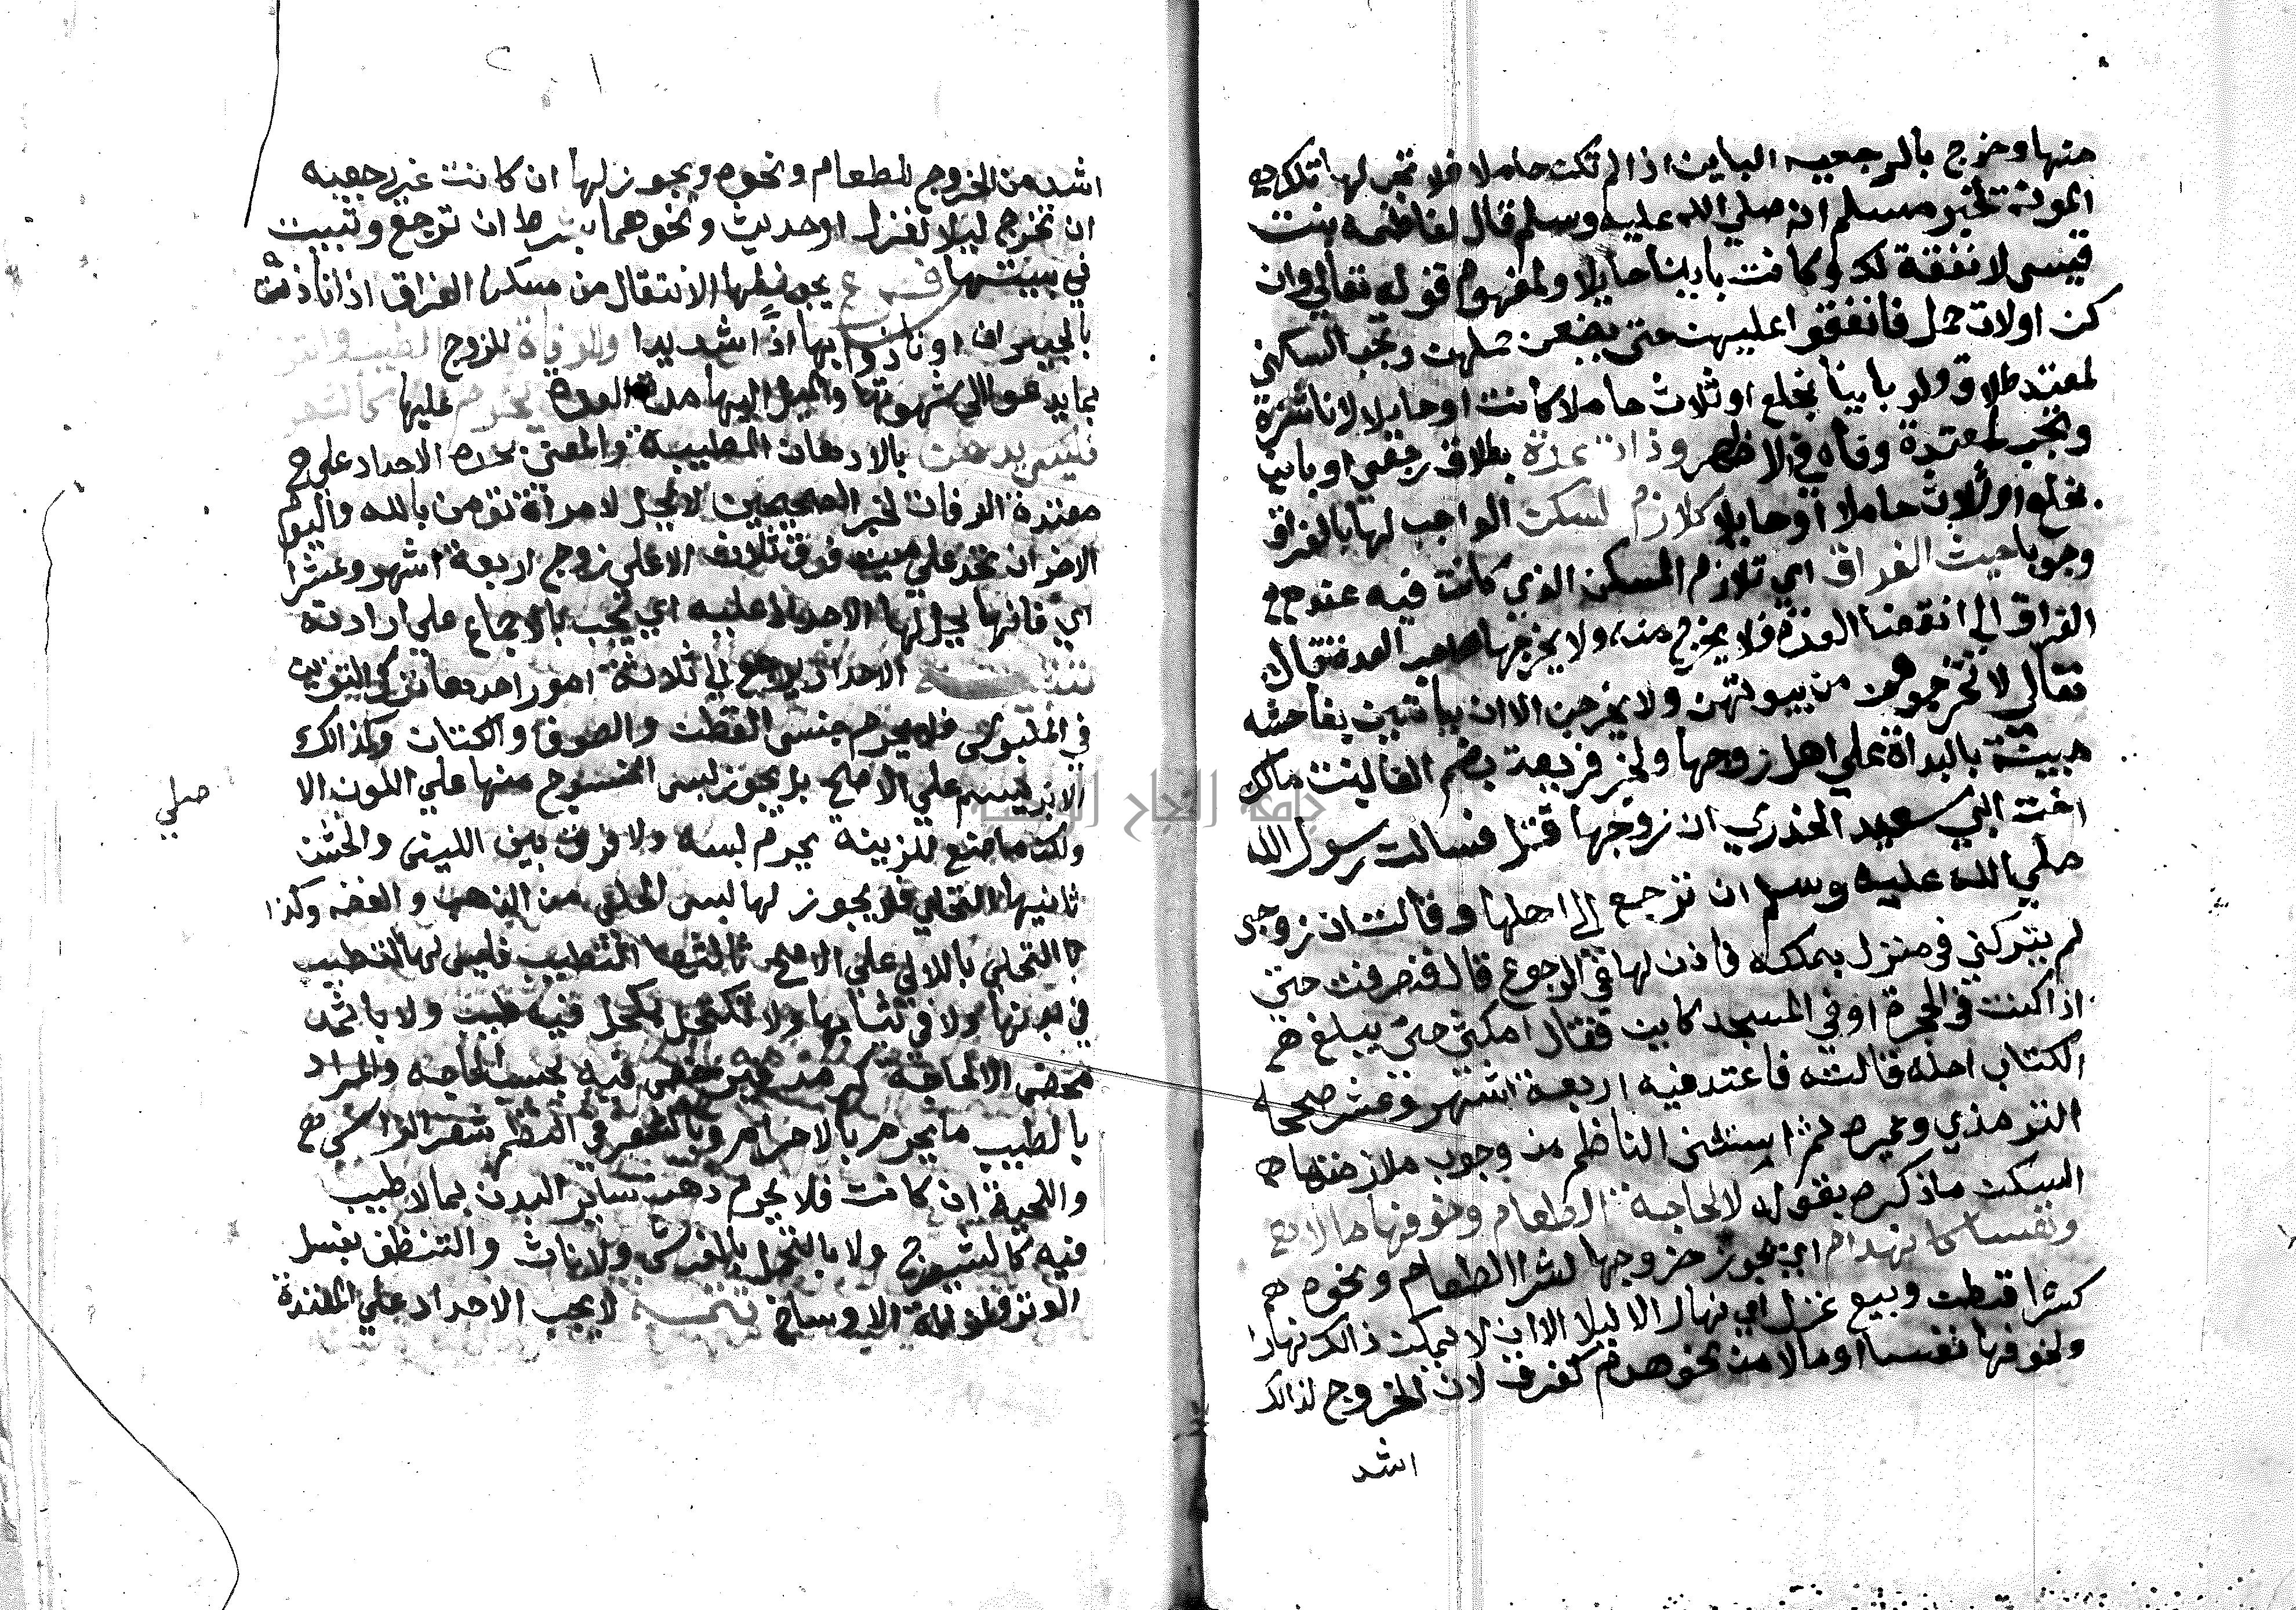 منها وخرج بالرجعيه الباين اذا لم تكن حاملا فلا تجب لها تلك
المونة لخبر مسلم انه صلي الله عليه وسلم قال لفاطمه بنت
قيس لا نفقة لك وكانت باينا حايلا ولمفهوم قوله تعالي وان
كن اولات حمل فانفقوا عليهن حتي يضعن حملهن وتجب السكني
لمعتدة طلاق ولو باينا بخلع او ثلاث حاملا كانت او حايلا لا ناشزة
وتجب لمعتدة وفاه في الاظهر وذات عدة بطلاق رجعي او باين
بخلع او ثلاث حاملا او حايلا كلازم لسكن الواجب لها بالفراق
وجوبا حيث الفراق اي تلازم المسكن الذي كانت فيه عند
الفراق الي انقضا العدة فلا يخرج منه ولا يخرجها صاحب العدة قال
تعالي لا تخرجوهن من بيوتهن ولا يخرجن الا ان ياتين بفاحشه
مبينة بالبداة علي اهل زوجها ولخبر فريعة بضم الفا بنت مالك
اخت ابي سعيد الخدري ان زوجها قتل فسالت رسول الله
صلي الله عليه وسلم ان ترجع الي اهلها وقالت ان زوجي
لم يتركني في منزل يملكه فاذن لها في الرجوع قال فنصرفت حتي
اذا كنت في الحجرة او في المسجد كاين فقال امكثي حتي يبلغ
الكتاب اجله قالت فاعتد فيه اربعة اشهر وعشر صححه
الترمذي وغيره ثم استثني الناظم من وجوب ملازمتها
السكن ما ذكره بقوله لا لحاجة الطعام وخوفها مالا مع
ونفسا كانهدام اي يجوز خروجها لشرا الطعام ونحوه
كشرا قطن وبيع غزل اي نهار الا ليلا الا ان لا يمكن ذالك نهارا
ولخوفها نفسا او مالا من نحو هدم كغرق لان الخروج لذالك
اشد
اشد من الخروج للطعام ونحوه ويجوز لها ان كانت غير رجعيه
ان تخرج ليلا لغزل او حديث ونحوهما بشرط ان ترجع وتبيت
في بيتها فرع يجوز لها الانتقال من مسكن الفراق اذا تاذت
بالجيران او تاذوا بها اذا شديدا وللوفاة للزوج الطيب
بما يدعو الي شهوتها والميل اليها مدة العدة يحرم عليها
فليس يدهن بالادهان المطيبة والمعني يجب الاحداد علي
معتدة الوفات لخبر الصحيحين لا يحل لامراة تومن بالله واليوم
الاخر ان تحد علي ميت فوق ثلاث الا علي زوج اربعة اشهر وعشرا
اي فانها يحل لها الاحداد عليه اي يجب بالاجماع علي ارادته
الاحداد يرجع الي ثلاثة امور احدها ترك التزين
في الملبوس فلا يحرم جنس القطن والصوف والكتان وكذالك
الابريسم علي الاصح بل يجوز لبس المنسوج منها علي اللون الا
ولكن ما صنع للزينه يحرم لبسه ولا فرق بين اللين والخشن
ثانيها التحلي فلا يجوز لها لبس الحلي من الذهب والفضه وكذا
كالتحلي باللالي علي الاصح ثالثها التطيب فليس لها التطيب
في بدنها ولا في ثيابها ولا تكتحل بكحل فيه طيب ولا باثمد
محض الا لحاجة كرمد فيرخص فيه بحسب الحاجه والمراد
بالطيب ما يحرم بالاحرام وبالشعر في النظم شعر الراس
واللحية ان كانت فلا يحرم دهن ساير البدن بما لا طيب
فيه كالشيرج ولا بالتجمل بالفرش والاثاث والتنظف بغسل
الاوساخ تتمه لا يجب الاحداد علي المعتدة
صلي
جامعة النجاح الوطنية